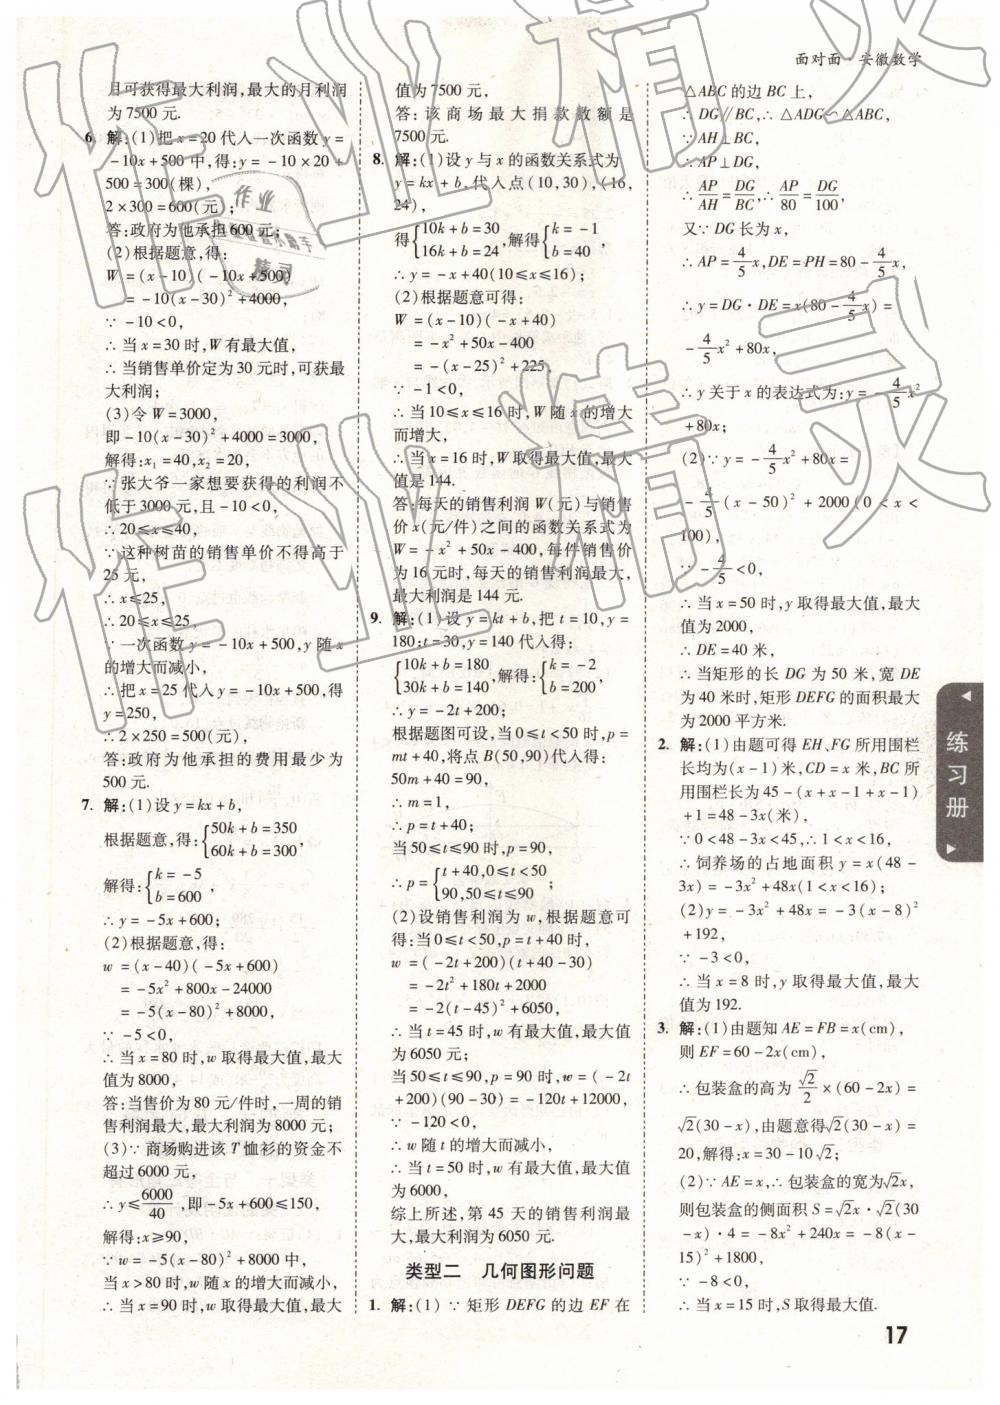 面对面·安徽数学
月可获得最大利润,最大的月利润
为7500元.
6. 解:(1)把x=20代入一次函数y=
-10x+500中,得:y=-10×20+
500=300(棵),
2×300=600(元),
答:政府为他承担600元;
(2)根据题意,得:
W=(x-10)(-10x+500)
=-10(x-30)²+4000,
∵-10<0,
∴当x=30时,W有最大值,
∴当销售单价定为30元时,可获最
大利润;
(3)令W=3000,
即-10(x-30)²+4000=3000,
解得:x₁=40,x₂=20,
∵张大爷一家想要获得的利润不
低于3000元,且-10<0,
∴20≤x≤40,
∵这种树苗的销售单价不得高于
25元,
∴x≤25,
∴20≤x≤25,
∵一次函数y=-10x+500,y随x
的增大而减小,
∴把x=25代入y=-10x+500,得
y=250,
∴2×250=500(元),
答:政府为他承担的费用最少为
500元.
7. 解:(1)设y=kx+b,
根据题意,得:{50k+b=350
60k+b=300,
解得:{k=-5
b=600,
∴y=-5x+600;
(2)根据题意,得:
w=(x-40)(-5x+600)
=-5x²+800x-24000
=-5(x-80)²+8000,
∵-5<0,
∴当x=80时,w取得最大值,最大
值为8000,
答:当售价为80元/件时,一周的销
售利润最大,最大利润为8000元;
(3)∵商场购进该T恤衫的资金不
超过6000元,
∴y≤6000/40,即-5x+600≤150,
解得:x≥90,
∵w=-5(x-80)²+8000中,当
x>80时,w随x的增大而减小,
∴当x=90时,w有最大值,最大
值为7500元,
答:该商场最大捐款数额是
7500元.
8. 解:(1)设y与x的函数关系式为
y=kx+b,代入点(10,30),(16,
24),
得{10k+b=30
16k+b=24,解得{k=-1
b=40
∴y=-x+40(10≤x≤16);
(2)根据题意可得:
W=(x-10)(-x+40)
=-x²+50x-400
=-(x-25)²+225,
∵-1<0,
∴当10≤x≤16时,W随x的增大
而增大,
∴当x=16时,W取得最大值,最大
值是144.
答:每天的销售利润W(元)与销售
价x(元/件)之间的函数关系式为
W=-x²+50x-400,每件销售价
为16元时,每天的销售利润最大,
最大利润是144元.
9. 解:(1)设y=kt+b,把t=10,y=
180;t=30,y=140代入得:
{10k+b=180
30k+b=140,解得:{k=-2
b=200,
∴y=-2t+200;
根据题图可设,当0≤t<50时,p=
mt+40,将点B(50,90)代入得:
50m+40=90,
∴m=1,
∴p=t+40;
当50≤t≤90时,p=90,
∴p={t+40,0≤t<50
90,50≤t≤90;
(2)设销售利润为w,根据题意可
得:当0≤t<50,p=t+40时,
w=(-2t+200)(t+40-30)
=-2t²+180t+2000
=-2(t-45)²+6050,
∴当t=45时,w有最大值,最大值
为6050元;
当50≤t≤90,p=90时,w=(-2t
+200)(90-30)=-120t+12000,
∵-120<0,
∴w随t的增大而减小,
∴当t=50时,w有最大值,最大值
为6000,
综上所述,第45天的销售利润最
大,最大利润为6050元.
类型二 几何图形问题
1. 解:(1)∵矩形DEFG的边EF在
△ABC的边BC上,
∴DG∥BC,∴△ADG∽△ABC,
∵AH⊥BC,
∴AP⊥DG,
∴AP/AH=DG/BC,∴AP/80=DG/100,
又∵DG长为x,
∴AP=4/5x,DE=PH=80-4/5x,
∴y=DG·DE=x(80-4/5x)=
-4/5x²+80x,
∴y关于x的表达式为:y=-4/5x²
+80x;
(2)∵y=-4/5x²+80x=
-4/5(x-50)²+2000(0<x<
100),
∵-4/5<0,
∴当x=50时,y取得最大值,最大
值为2000,
∴DE=40米,
∴当矩形的长DG为50米,宽DE
为40米时,矩形DEFG的面积最大
为2000平方米.
2. 解:(1)由题可得EH、FG所用围栏
长均为(x-1)米,CD=x米,BC所
用围栏长为45-(x+x-1+x-1)
+1=48-3x(米),
∵0<48-3x<45,∴1<x<16,
∴饲养场的占地面积y=x(48-
3x)=-3x²+48x(1<x<16);
(2)y=-3x²+48x=-3(x-8)²
+192,
∵-3<0,
∴当x=8时,y取得最大值,最大
值为192.
3. 解:(1)由题知AE=FB=x(cm),
则EF=60-2x(cm),
∴包装盒的高为√2/2×(60-2x)=
√2(30-x),由题意得√2(30-x)=
20,解得:x=30-10√2;
(2)∵AE=x,∴包装盒的宽为√2x,
则包装盒的侧面积S=√2x·√2(30
-x)·4=-8x²+240x=-8(x-
15)²+1800,
∵-8<0,
∴当x=15时,S取得最大值.
练习册
17
作业精灵
作业
精灵